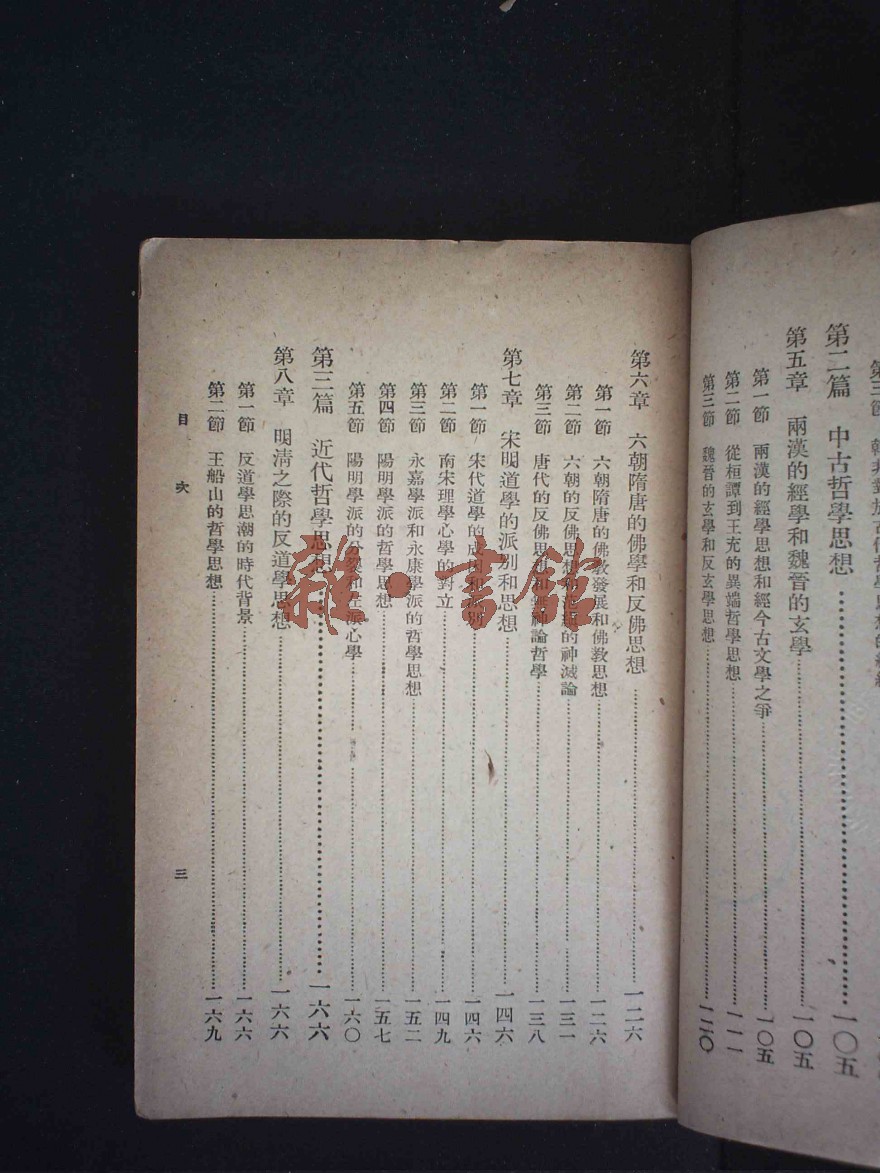 第二篇 中古哲學思想……一〇五
第五章 兩漢的經學和魏晉的玄學……一〇五
第一節 兩漢的經學思想和經今古文學之爭……一〇五
第二節 從桓譚到王充的異端哲學思想……一一一
第三節 魏晉的玄學和反玄學思想……一二〇
第六章 六朝隋唐的佛學和反佛思想……一二六
第一節 六朝隋唐的佛教發展和佛教思想……一二六
第二節 六朝的反佛思想和范縝的神滅論……一三一
第三節 唐代的反佛思想和無神論哲學……一三八
第七章 宋明道學的派別和思想……一四六
第一節 宋代道學的成因和派別……一四六
第二節 南宋理學心學的對立……一四九
第三節 永嘉學派和永康學派的哲學思想……一五二
第四節 陽明學派的哲學思想……一五七
第五節 陽明學派的分裂和左派心學……一六〇
第三篇 近代哲學思想……一六六
第八章 明清之際的反道學思想……一六六
第一節 反道學思潮的時代背景……一六六
第二節 王船山的哲學思想……一六九
目次
三
雜·書館